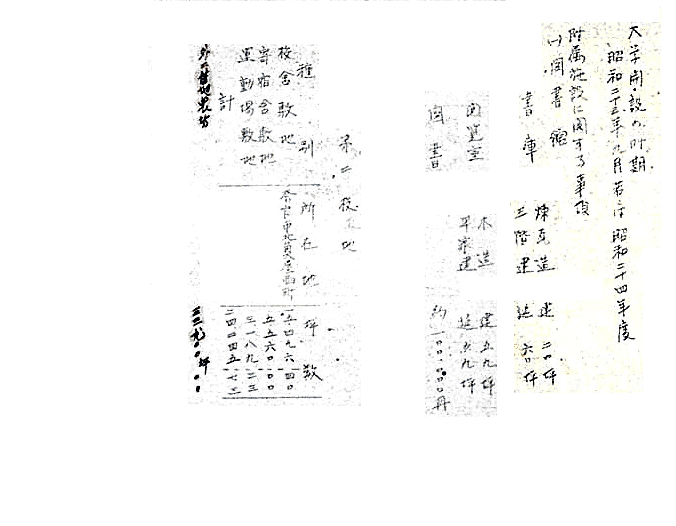 大学開設の時期
昭和二十三年九月若くは昭和二十四年度
附属施設に関する事項
(一)図書館
書庫 煉瓦造 建 二〇坪
三階建 延 六〇坪
閲覧室 木造 建五九坪
平家建 延五九坪
図書 約一〇〇.〇〇〇冊
第二校地
種別 所在地 坪数
校舎敷地 四九六 四〇
寄宿舎敷地 五五六〇 〇〇
運動場敷地 三一八九 二三
計